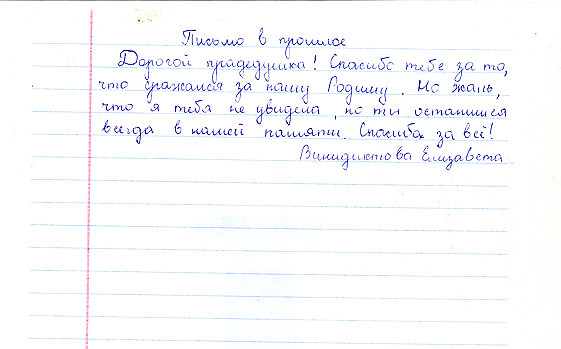 Письмо в прошлое
Дорогой прадедушка! Спасибо тебе за то,
что сражался за нашу Родину. Но жаль,
что я тебя не увидела, но ты останишся
всегда в нашей памяти. Спасибо за всё!
Виниди́ктова Елизавета